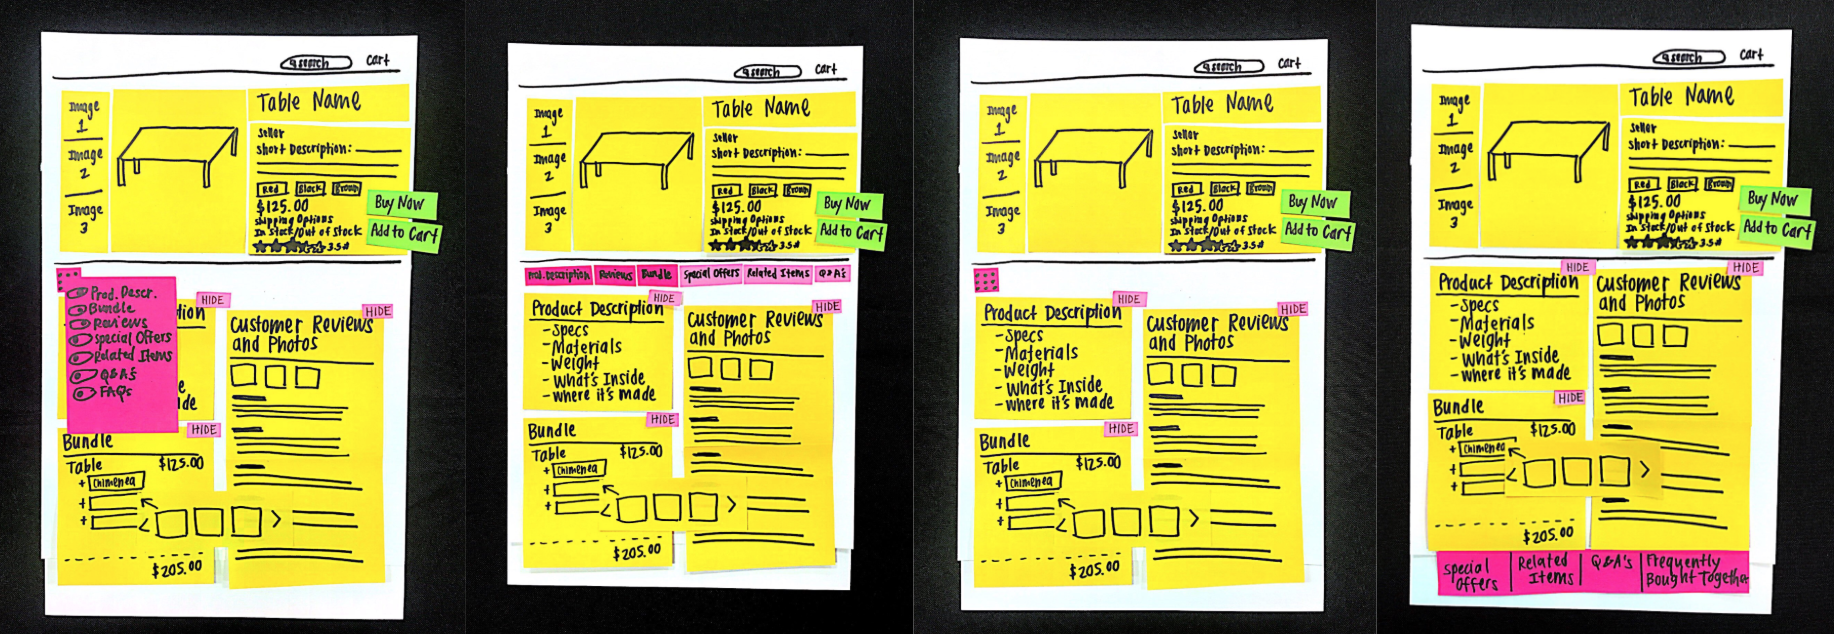 search
Cart
Image
1
Image
2
Image
3
Table Name
Seller
Short Description:
Red Black Brown
$125.00
Shipping Options
In Stock/Out of Stock
3.5#
Buy Now
Add to Cart
Prod. Descr.
Bundle
Reviews
Special Offers
Related Items
Q&A's
FAQs
HIDE
HIDE
HIDE
Customer Reviews
and Photos
Bundle
Table $125.00
+ Chimenea
+
+
< >
$205.00
search
Cart
Image
1
Image
2
Image
3
Table Name
Seller
Short Description:
Red Black Brown
$125.00
Shipping Options
In Stock/Out of Stock
3.5#
Buy Now
Add to Cart
Prod. Description Reviews Bundle Special Offers Related Items Q&A's
HIDE
HIDE
HIDE
Product Description
- Specs
- Materials
- Weight
- What's Inside
- Where it's made
Customer Reviews
and Photos
Bundle
Table $125.00
+ Chimenea
+
+
< >
$205.00
search
Cart
Image
1
Image
2
Image
3
Table Name
Seller
Short Description:
Red Black Brown
$125.00
Shipping Options
In Stock/Out of Stock
3.5#
Buy Now
Add to Cart
HIDE
HIDE
HIDE
Product Description
- Specs
- Materials
- Weight
- What's Inside
- Where it's made
Customer Reviews
and Photos
Bundle
Table $125.00
+ Chimenea
+
+
< >
$205.00
search
Cart
Image
1
Image
2
Image
3
Table Name
Seller
Short Description:
Red Black Brown
$125.00
Shipping Options
In Stock/Out of Stock
3.5#
Buy Now
Add to Cart
HIDE
HIDE
HIDE
Product Description
- Specs
- Materials
- Weight
- What's Inside
- Where it's made
Customer Reviews
and Photos
Bundle
Table $125.00
+ Chimenea
+
+
< >
$205.00
Special
Offers
Related
Items
Q&A's
Frequently
Bought Together